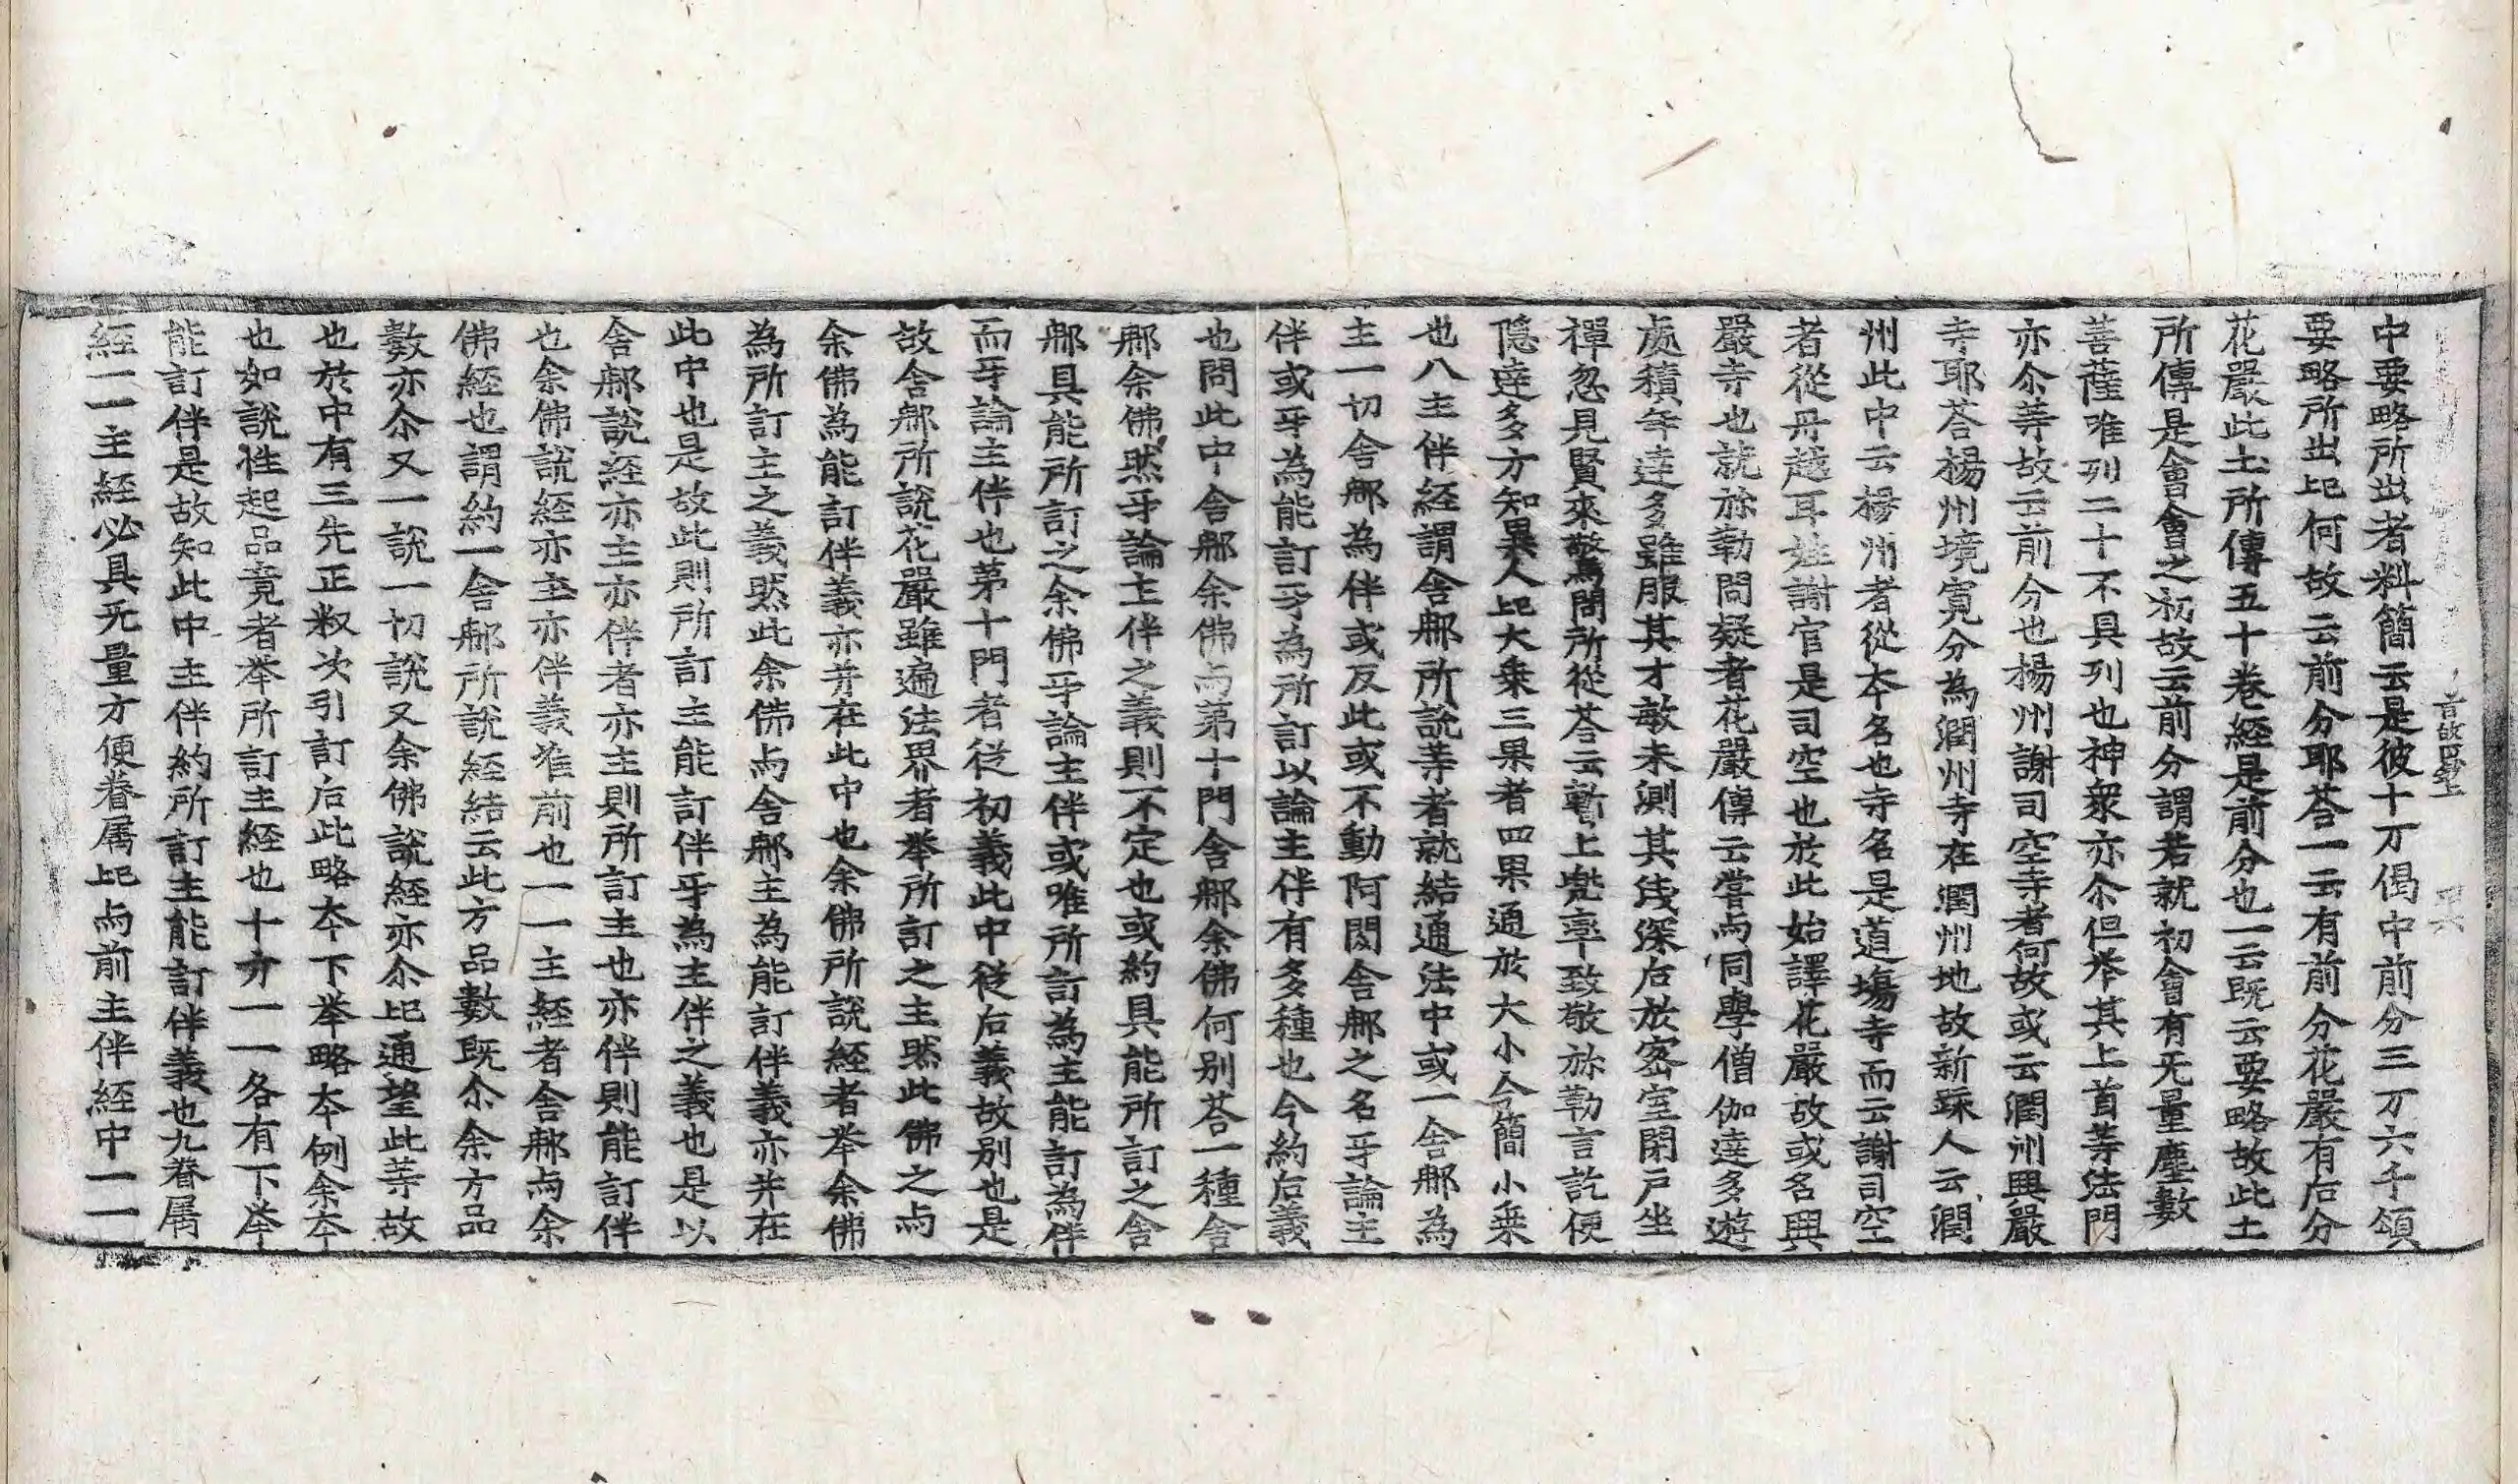 中要略所出者料簡云是彼十万偈中前分三万六千頌
要略所出此何故云前分耶荅一云有前分花嚴有后分
花嚴此土所傳五十卷經是前分也一云既云要略故此土
所傳是會會之初故云前分謂若就初會有无量塵數
菩薩唯列二十不具列也神衆亦尒但举其上首等法門
亦尒等故云前分也楊州謝司空寺者何故或云潤州興嚴
寺耶荅楊州境寛分為潤州寺在潤州地故新踈人云潤
州此中云楊州者從夲名也寺名是道塲寺而云謝司空
者從丹越耳姓謝官是司空也於此始譯花嚴故或名興
嚴寺也就弥勒問疑者花嚴傳云嘗与同學僧伽達多遊
處積年達多雖服其才敏未測其浅深后於宻室閉戸坐
禪忽見賢來驚問所從荅云暫上兠率致敬弥勒言訖便
隠達多方知異人此大乗三果者四果通於大小今簡小乗
也八主伴經謂舎那所說等者就結通法中或一舎那為
主一切舎那為伴或反此或不動阿閦舎那之名牙論主
伴或牙為能訂牙為所訂以論主伴有多種也今約后義
也問此中舎那余佛与第十門舎那余佛何别荅一種舎
那余佛然牙論主伴之義則不定也或約具能所訂之舎
那具能所訂之余佛牙論主伴或唯所訂為主能訂為伴
而牙論主伴也第十門者從初義此中從后義故别也是
故舎那所說花嚴雖遍法界者举所訂之主然此佛之与
余佛為能訂伴義亦并在此中也余佛所說經者举余佛
為所訂主之義然此余佛与舎那主為能訂伴義亦并在
此中也是故此則所訂主能訂伴牙為主伴之義也是以
舎那說經亦主亦伴者亦主則所訂主也亦伴則能訂伴
也余佛說經亦主亦伴義准前也一一主經者舎那与余
佛經也謂約一舎那所說經結云此方品數既尒余方品
數亦尒又一說一切說又余佛說經亦尒此通望此等故
也於中有三先正叙次引訂后此略夲下举略夲例余夲
也如說性起品竟者举所訂主經也十方一一各有下举
能訂伴是故知此中主伴約所訂主能訂伴義也九眷属
經一一主經必具无量方便眷属此与前主伴經中一一